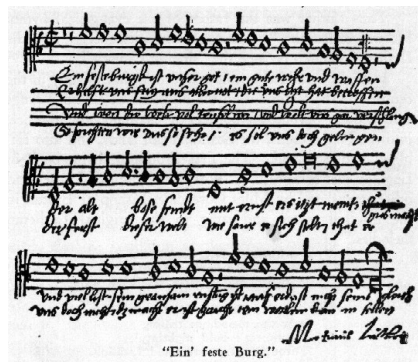 Ein feste burg ist unser got ein gute wehr und waffen
aus not die uns hat betroffen
Und wenn die welt vol teufel und wolt uns gar
So furchten wir uns so sehr es sol uns doch gelingen
Der alt bose feindt mit ernst ers itzt meint
der furst dieser welt wie saur er sich stelt thut er
und viel list sein grausam rustung ist auf erd ist nicht seins gleich
uns doch nicht das macht er ist gericht ein wortlin kan in fellen
Luther
"Ein' feste Burg."